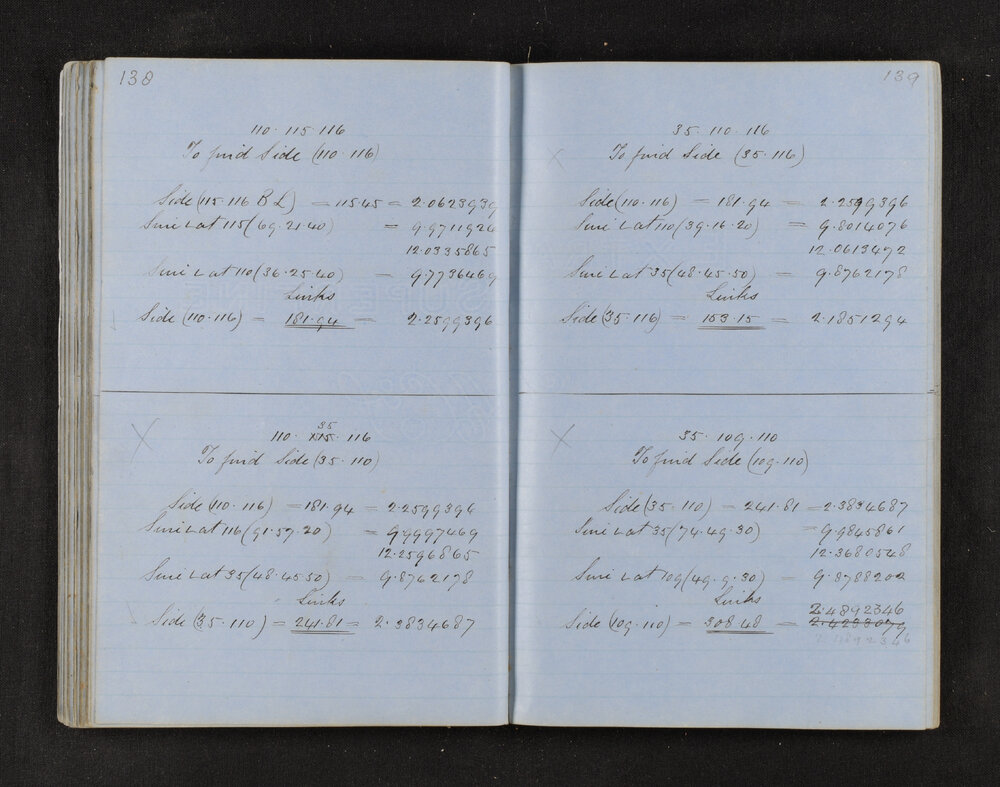 138
110. 115. 116
To find Side (110. 116)
Side (115. 116 B L) = 115.45 = 2.0623939
Sine L at 115 (69. 21. 40) = 9.9711926
12.0335865
Sine L at 110 (36. 25. 40) = 9.7736469
Links
Side (110. 116) = 181.94 = 2.2599396
35
110. 115. 116
To find Side (35. 110)
Side (110. 116) = 181.94 = 2.2599396
Sine L at 116 (91. 57. 20) = 9.9997469
12.2596865
Sine L at 35 (48. 45 50) = 9.8762178
Links
Side (35. 110) = 241.81 = 2.3834687
139
35. 110. 116
To find Side (35. 116)
Side (110. 116) = 181.94 = 2.2599396
Sine L at 110 (39. 16. 20) = 9.8014076
12.0613472
Sine L at 35 (48. 45. 50) = 9.8762178
Links
Side (35. 116) = 153.15 = 2.1851294
35. 109. 110
To find Side (109. 110)
Side (35. 110) = 241.81 = 2.3834687
Sine L at 35 (74. 49. 30) = 9.9845861
12.3680548
Sine L at 109 (49. 9. 30) = 9.8788202
Links
2.4892346
Side (109. 110) = 308.48 = 2.4293079
2.4892346